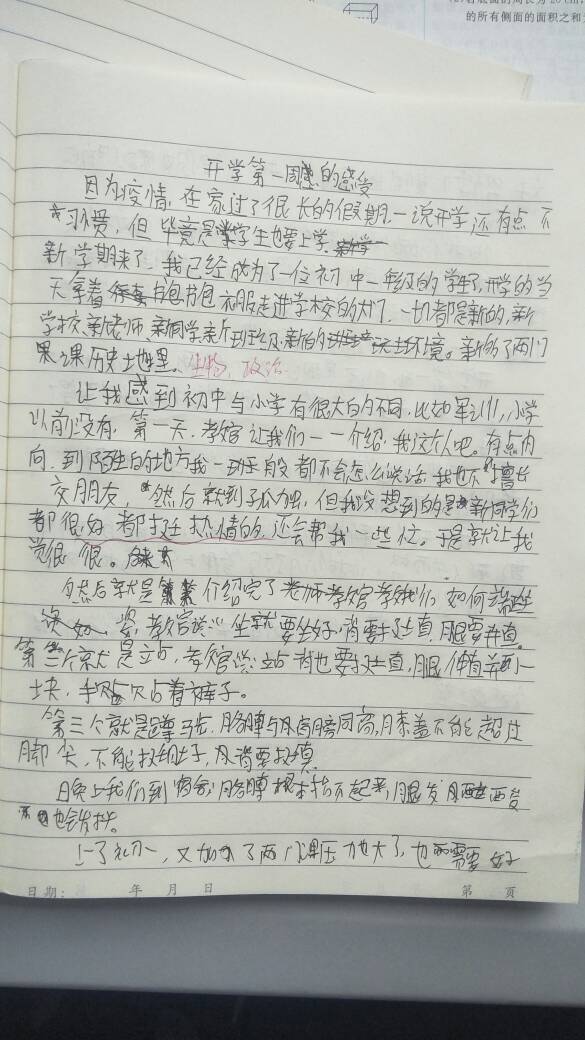 的所有侧面的面积之和
开学第一周的感受
因为疫情，在家过了很长的假期，一说开学还有点不
习惯，但毕竟是学生也要上学。
新学期来了，我已经成为了一位初中一年级的学生了，开学的当
天拿着书包衣服走进学校的大门，一切都是新的，新
学校、新老师、新同学、新班级、新的环境。新多了两门
课历史土地里。生物，政治
让我感到初中与小学有很大的不同，比如军训，小学
以前没有，第一天，教官让我们一一介绍，我这个人吧。有点内
向，到陌生的地方我一般都不会怎么说话，我也不擅长
交朋友，然后就到孤独，但我没想到的是新同学们
都很好都挺热情的，还会帮我一些忙。于是就让我
觉很很。
然后就是介绍完了老师教官教我们如何端坐
姿，教官说：坐就要坐好，背要挺直，腿要并直。
第二个就是立站，教官说：站背也要挺直，腿伸直并到一
块，手贴着裤子。
第三个就是蹲马步，胳膊与肩膀同高，膝盖不能超过
脚尖，不能撅肚子，后背要挺直。
晚上我们到宿舍胳膊根本抬不起来，腿发酸
也会发抖。
上了初一，又加了两门课压力也大了，也需要好
日期： 年 月 日 第 页